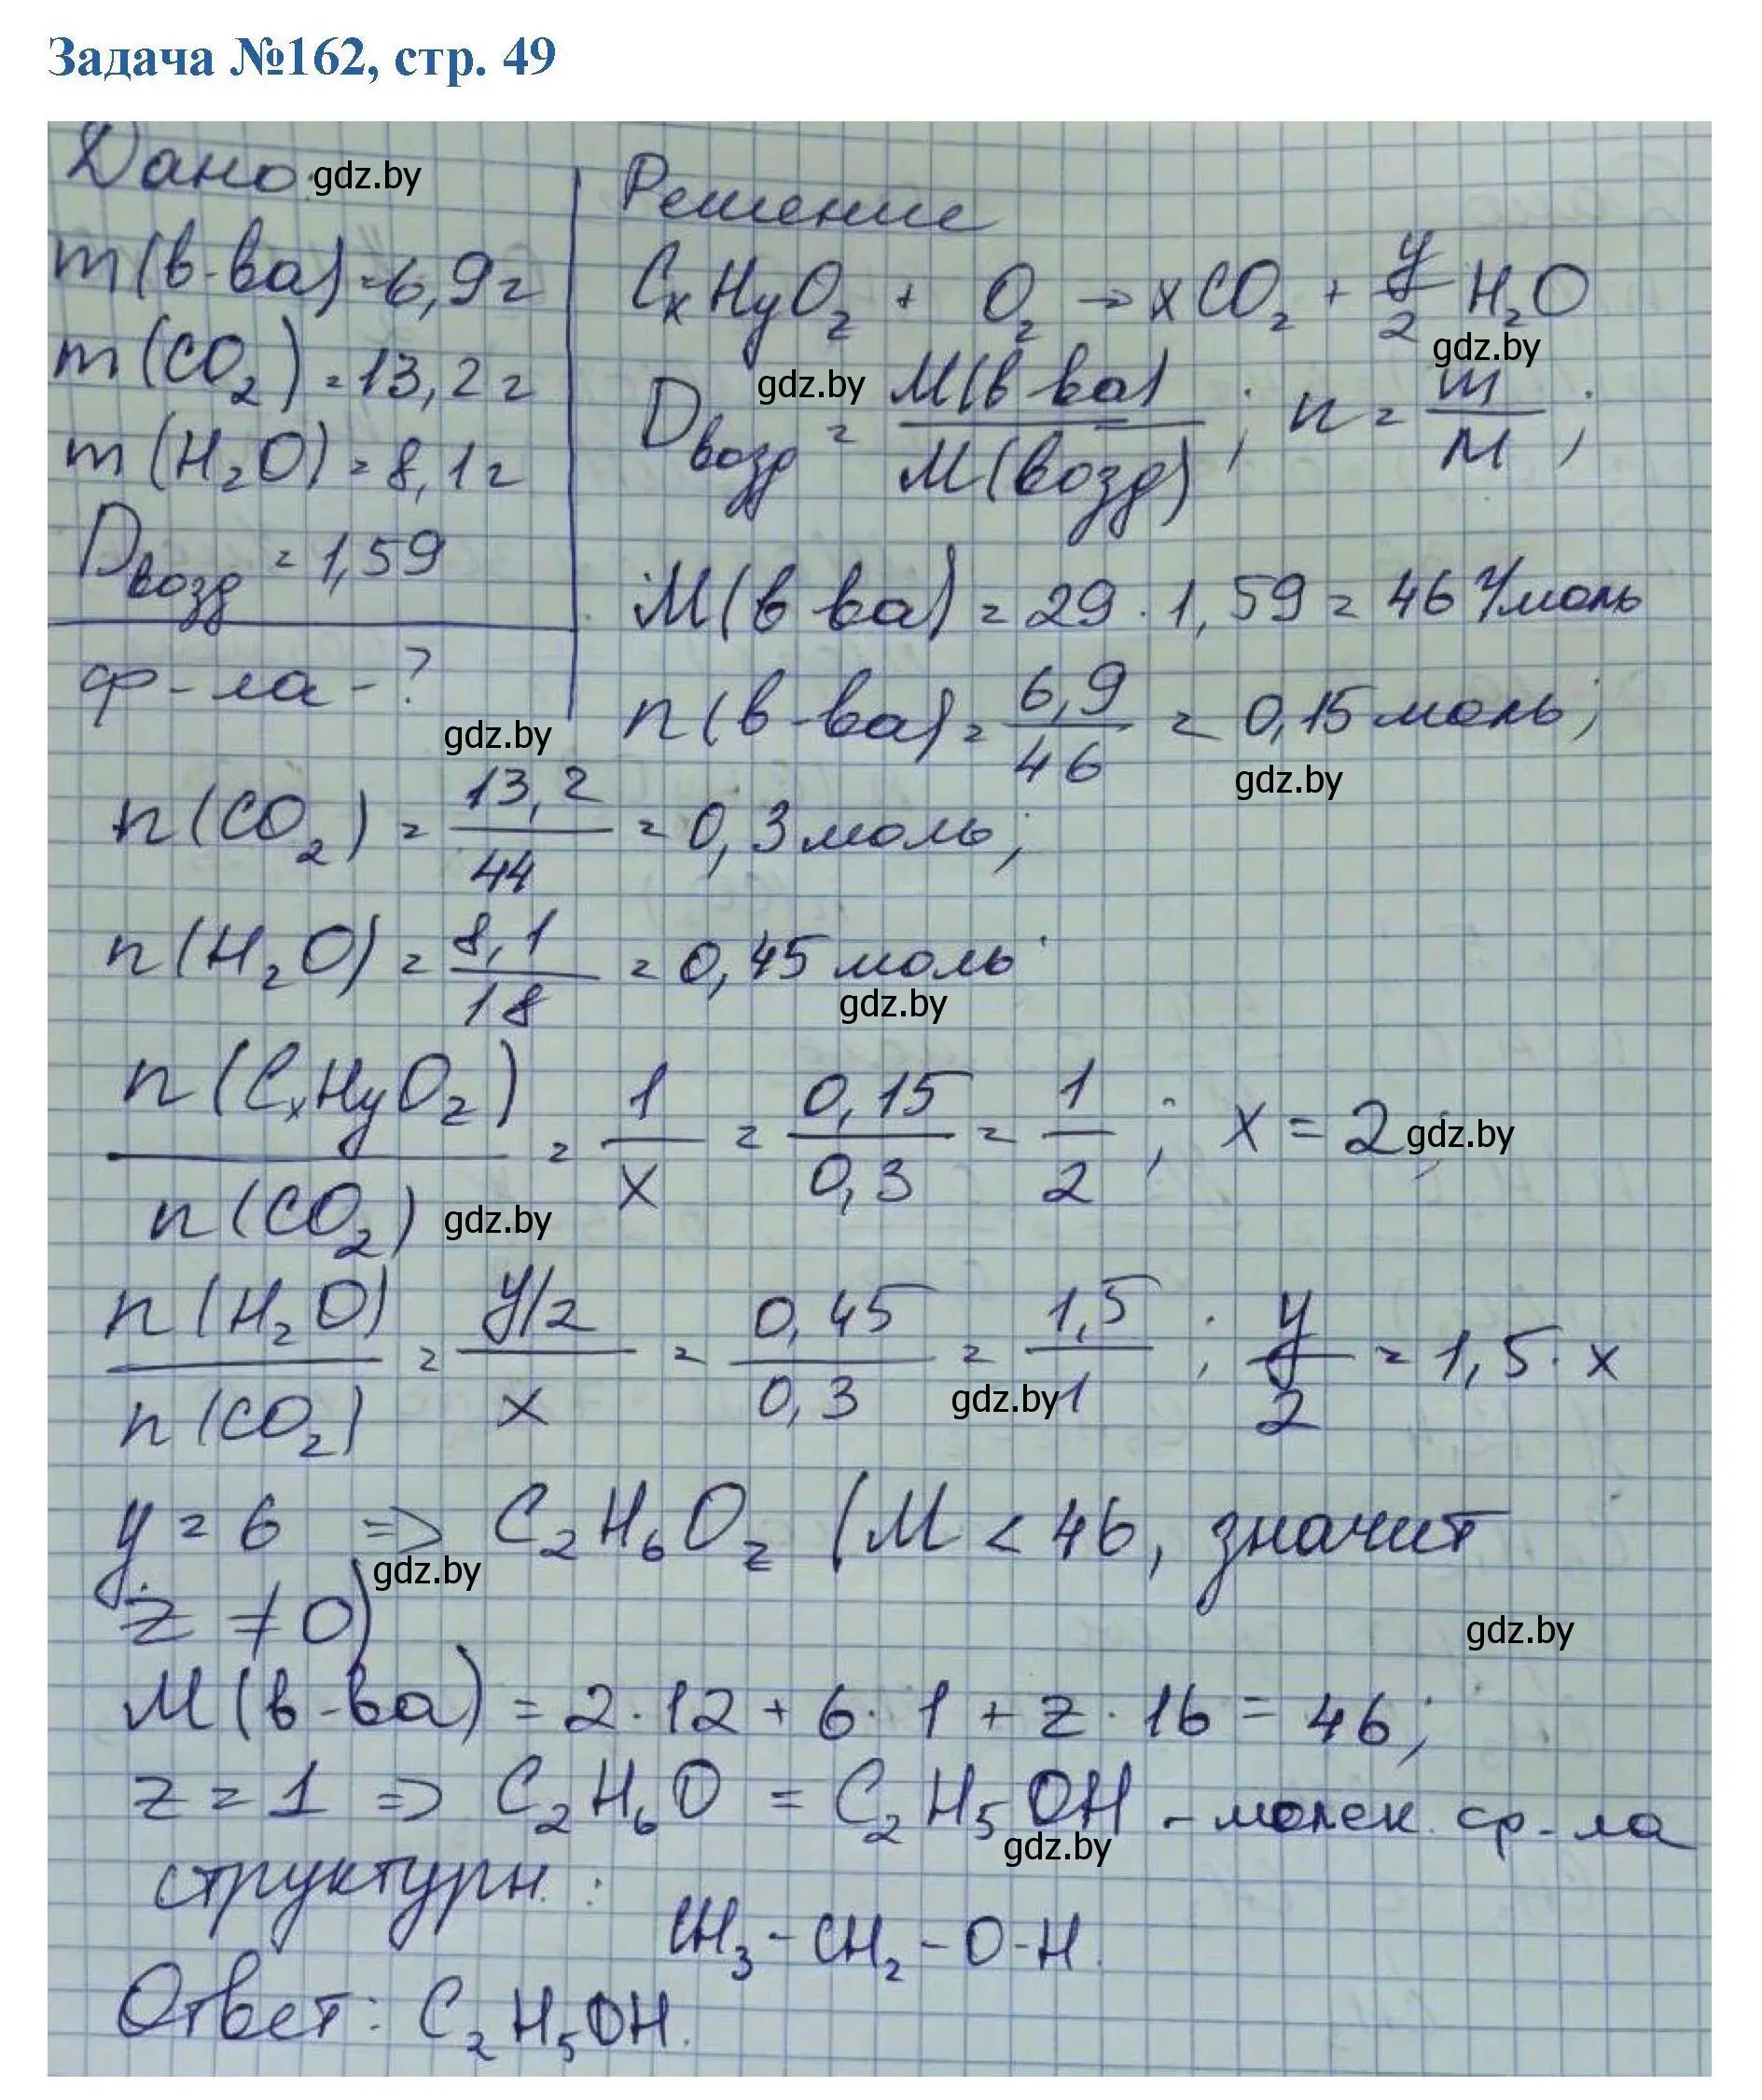 Задача №162, стр. 49
Дано: gdz.by
m(в-ва)=6,9г
m(CO₂)=13,2г
m(H₂O)=8,1г
Dвозд=1,59
ф-ла-?
gdz.by
Решение
CxHyOz + O₂ → xCO₂ + y/2 H₂O
gdz.by
gdz.by
Dвозд = M(в-ва)/M(возд); n = m/M;
M(в-ва) = 29·1,59 = 46 г/моль
n(в-ва) = 6,9/46 = 0,15 моль;
gdz.by
n(CO₂) = 13,2/44 = 0,3 моль;
n(H₂O) = 8,1/18 = 0,45 моль
gdz.by
n(CxHyOz)/n(CO₂) = 1/x = 0,15/0,3 = 1/2; x = 2; gdz.by
gdz.by
n(H₂O)/n(CO₂) = y/2/x = 0,45/0,3 = 1,5/1; y/2 = 1,5·x
gdz.by
y = 6 => C₂H₆Oz (M < 46, значит
gdz.by
z ≠ 0)
gdz.by
M(в-ва) = 2·12 + 6·1 + z·16 = 46;
z = 1 => C₂H₆O = C₂H₅OH - молек. ф-ла
gdz.by
структурн.:
CH₃-CH₂-O-H.
Ответ: C₂H₅OH.